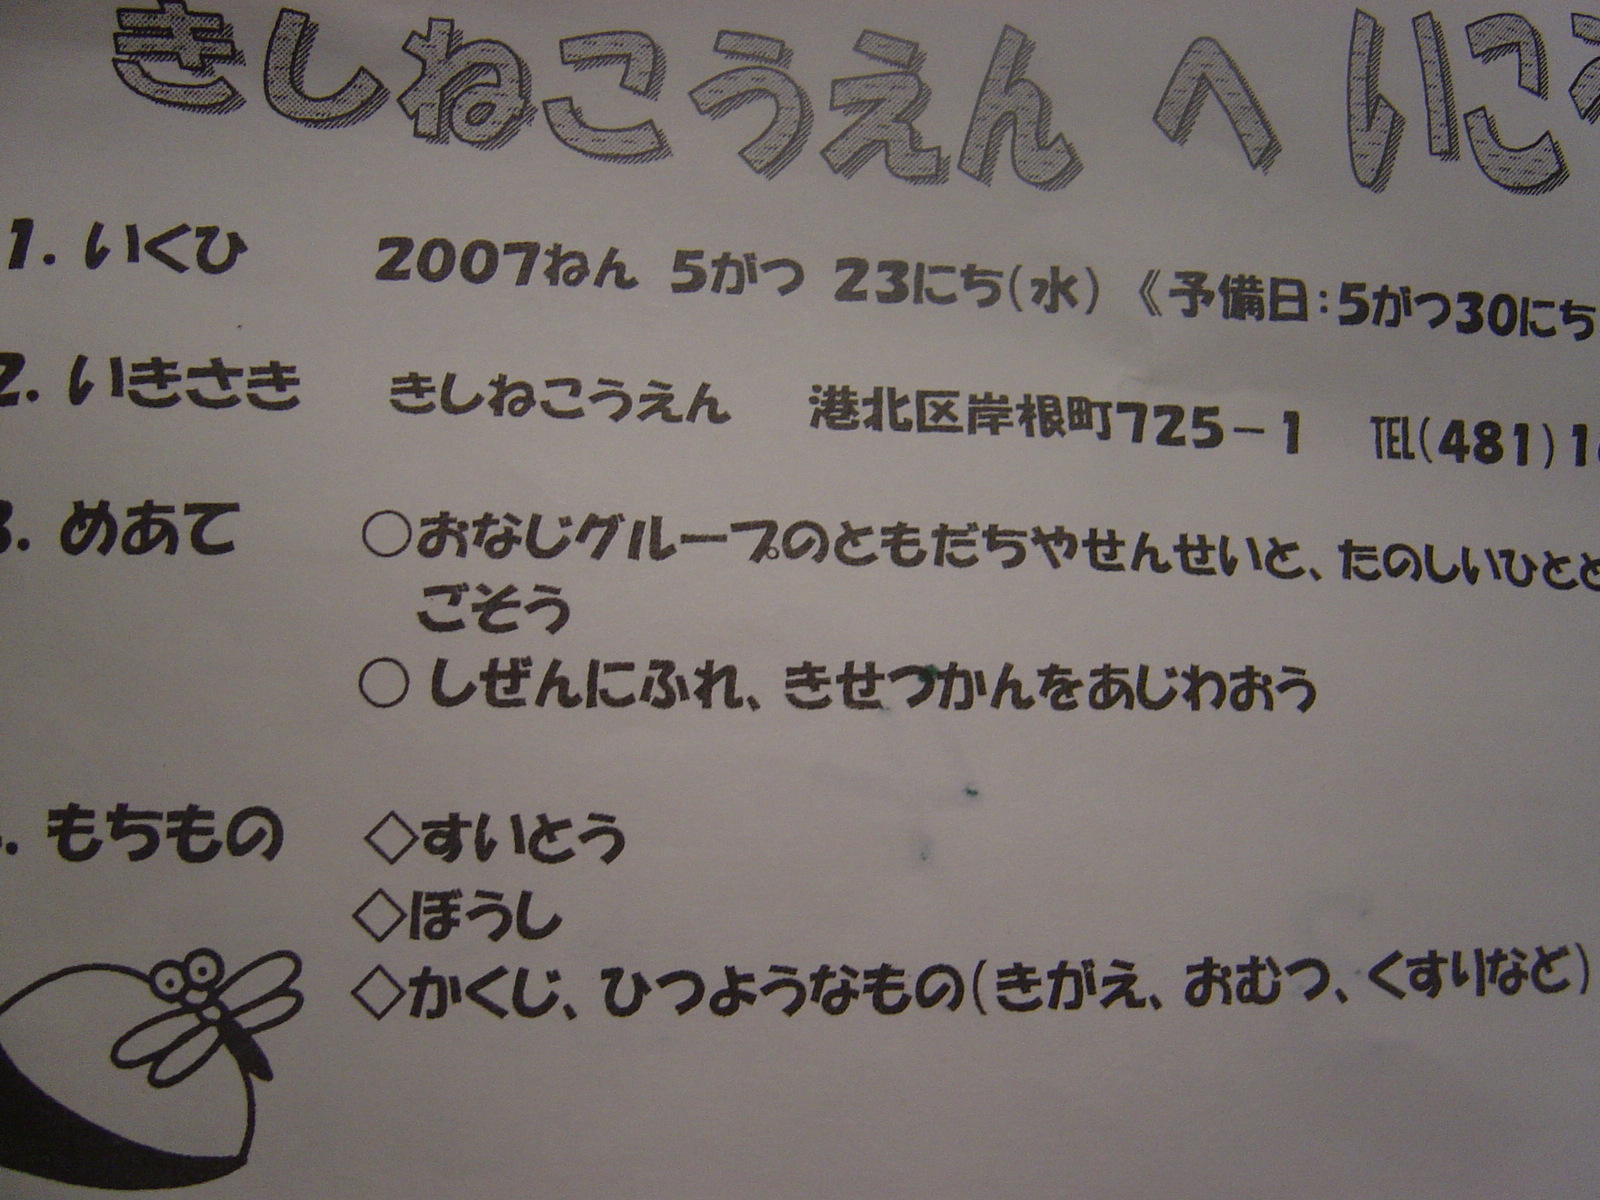 きしねこうえん へ いこ
1. いくひ 2007ねん 5がつ 23にち(水) 《予備日:5がつ30にち
2. いきさき きしねこうえん 港北区岸根町725-1 TEL(481)1
3. めあて ○おなじグループのともだちやせんせいと、たのしいひとと
ごそう
○しぜんにふれ、きせつかんをあじわおう
. もちもの ◇すいとう
◇ぼうし
◇かくじ、ひつようなもの(きがえ、おむつ、くすりなど)